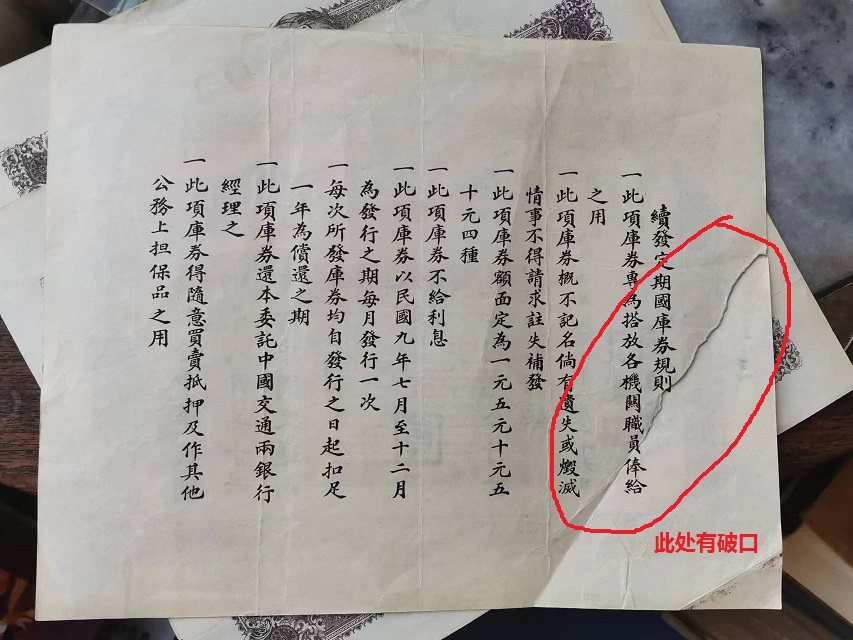 續發定期國庫券規則
一此項庫券專為搭放各機關職員俸給
之用
一此項庫券概不記名倘有遺失或燬滅
情事不得請求註失補發
一此項庫券額面定為一元五元十元五
十元四種
一此項庫券不給利息
一此項庫券以民國九年七月至十二月
為發行之期每月發行一次
一每次所發庫券均自發行之日起扣足
一年為償還之期
一此項庫券還本委託中國交通兩銀行
經理之
一此項庫券得隨意買賣抵押及作其他
公務上担保品之用
此处有破口